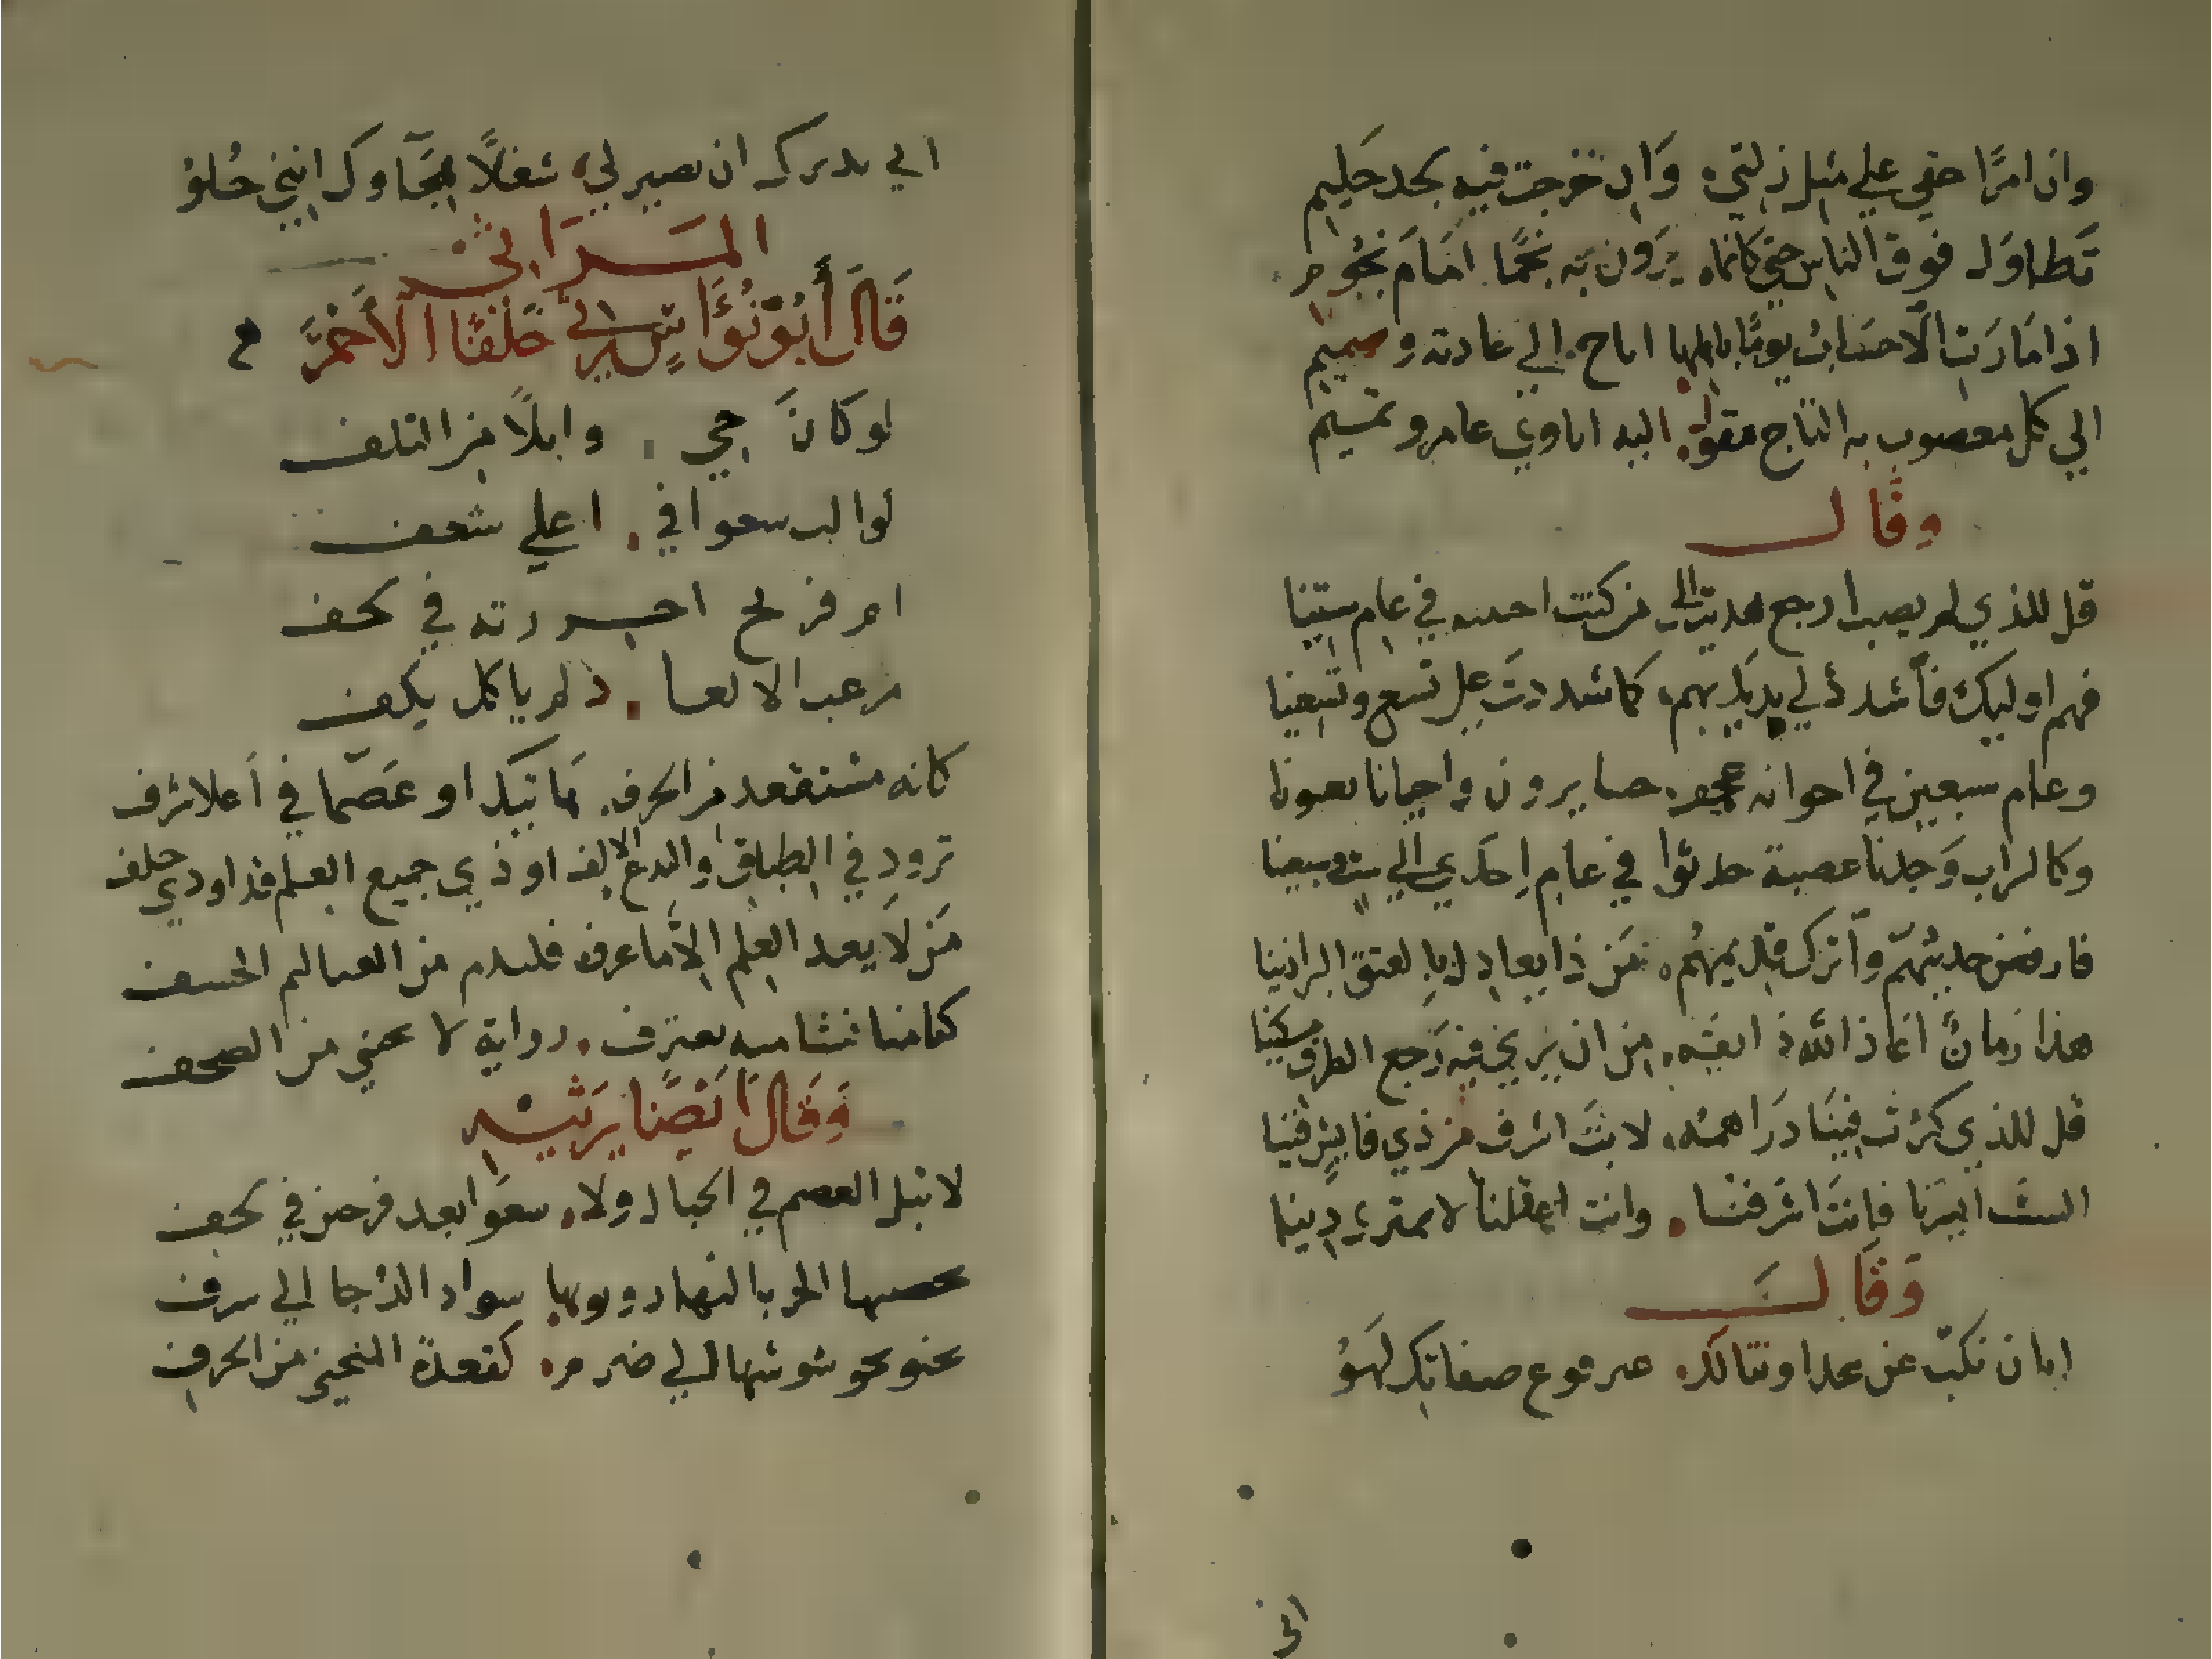 وان امرًا حقي علي مثل زلتي وان خرجت فيه بجد حليم
تطاول فوق الناس حتي كانما يرون به نجمًا امام نجوم
اذا ما رت الاحساب يومًا باهلها اناخ الي عادته وصميم
الي كل معصوب به التاج مقول اليه اتاوي عامر وتميم
وقال
قل للذي لم يصب ارجع هديت الي من كنت في عام ستينا
فهم اوليك فاشدد لي يديك بهم كما شددت علي تسع وتسعينا
وعام سبعين في احوانه صابرون واحيانا
وكالراب وجدنا عصبة حدثوا في عام احدي الي ست وسبعينا
فارفض حديثهم واترك قديمهم من ذا يعادل بالعتق البراذينا
هذا زمان من ان يريحني رجع الطرف مسكينا
قل للذي كثرت فينا دراهمه لانت اشرف من ذي فايش فينا
الست ايسرنا فانت اشرفنا وانت اعقلنا لا نمتري دينا
وقال
ابا ان نكبت عن صفاتك لهو
اني
اني بدرك ان نصير لي شغلًا انني خلو
المراثي
قال ابو نؤاس يرثي خلفًا الاحمر
لو كان حي وابلًا من التلف
لوالت في اعلي شعف
ام فرخ احرزته في لحف
مزغب الالغاد لم ياكل بكف
كانه مستقعد من الخرف هاتيك او عصما في اعلا شرف
ترود في الطباق والمدغ الالف اودي جميع العلم قد اودي خلف
من لا يعد العلم الا ما عرف قليدم من العيالم الخسف
كنا متي نشا منه نغترف رواية لا تجني من الصحف
وقال ايضًا يرثيه
لا تيل العصم في الجبال ولا شغوا بعد فرخين في لحف
بالنهار سواد الدجا الي شرف
تحنو الي ضرم كقعدة المنحني من الخرف